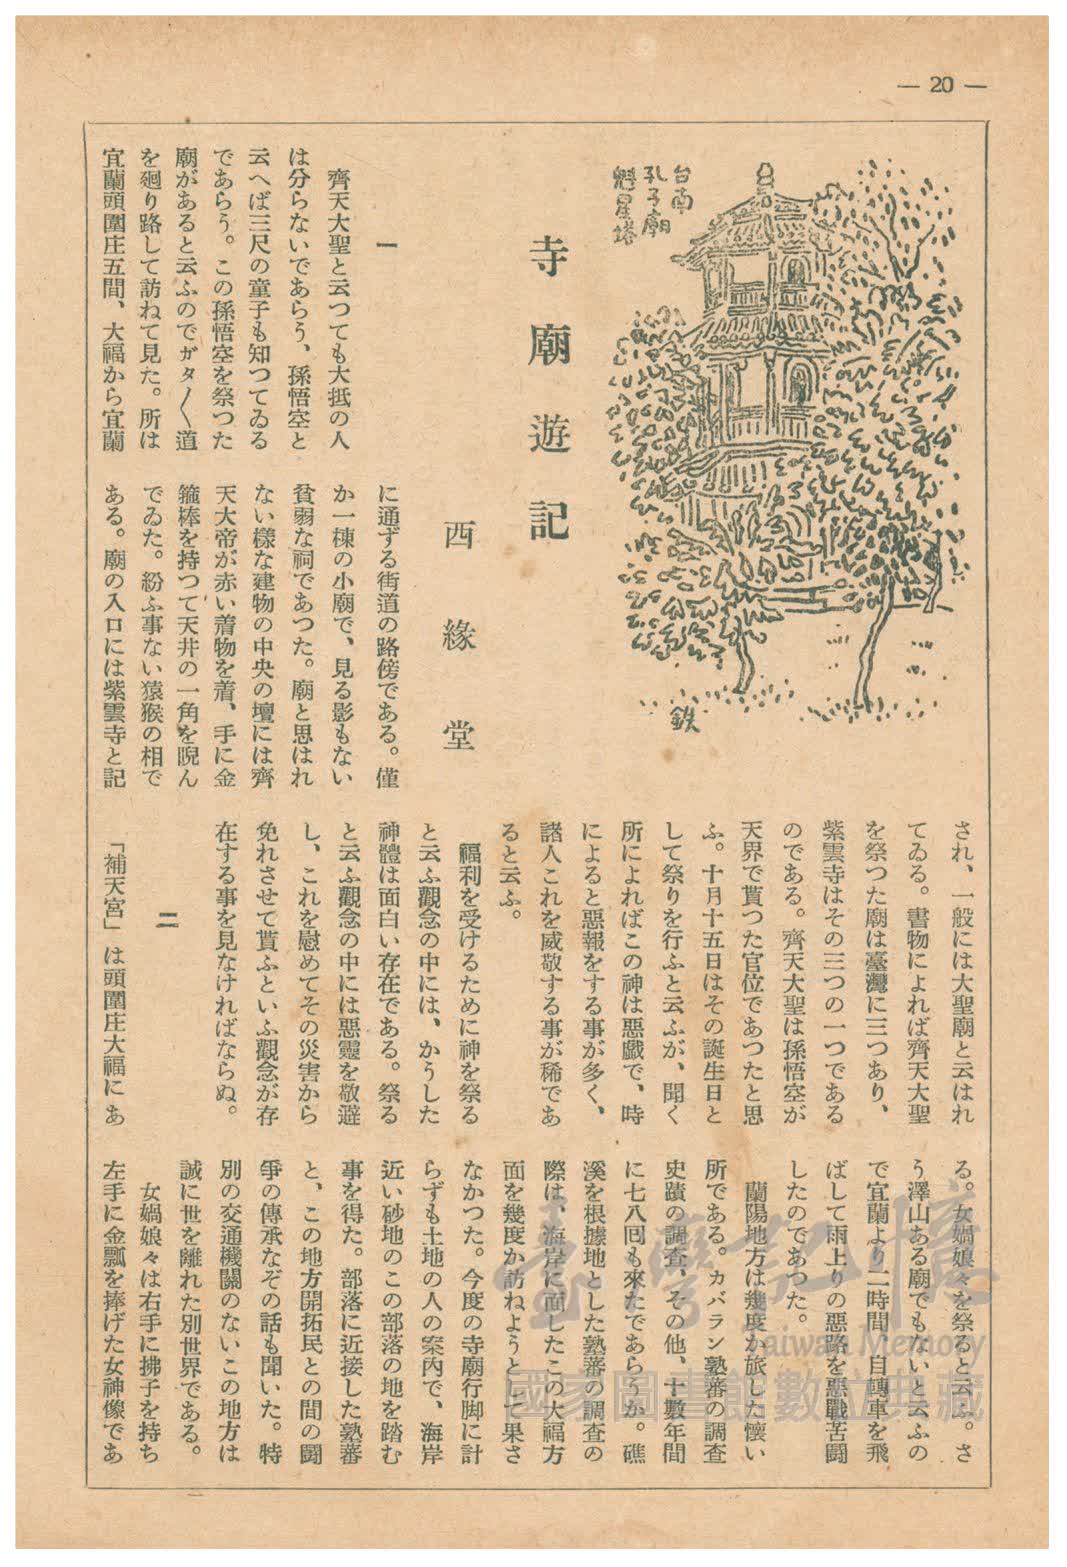 — 20 —
台南
孔子廟
魁星塔
鉄
寺廟遊記
西緣堂
一
齊天大聖と云つても大抵の人
は分らないであらう、孫悟空と
云へば三尺の童子も知つてゐる
であらう。この孫悟空を祭つた
廟があると云ふのでガタ〱道
を廻り路して訪ねて見た。所は
宜蘭頭圍庄五間、大福から宜蘭
に通ずる街道の路傍である。僅
か一棟の小廟で、見る影もない
貧弱な祠であつた。廟と思はれ
ない樣な建物の中央の壇には齊
天大帝が赤い着物を着、手に金
箍棒を持つて天井の一角を睨ん
でゐた。紛ふ事ない猿猴の相で
ある。廟の入口には紫雲寺と記
され、一般には大聖廟と云はれ
てゐる。書物によれば齊天大聖
を祭つた廟は臺灣に三つあり、
紫雲寺はその三つの一つである
のである。齊天大聖は孫悟空が
天界で貰つた官位であつたと思
ふ。十月十五日はその誕生日と
して祭りを行ふと云ふが、聞く
所によればこの神は惡戲で、時
によると惡報をする事が多く、
諸人これを威敬する事が稀であ
ると云ふ。
福利を受けるために神を祭る
と云ふ觀念の中には、かうした
神體は面白い存在である。祭る
と云ふ觀念の中には惡靈を敬避
し、これを慰めてその災害から
免れさせて貰ふといふ觀念が存
在する事を見なければならぬ。
二
「補天宮」は頭圍庄大福にあ
る。女媧娘々を祭ると云ふ。さ
う澤山ある廟でもないと云ふの
で宜蘭より二時間、自轉車を飛
ばして雨上りの惡路を惡戰苦鬪
したのであつた。
蘭陽地方は幾度か旅した懷い
所である。カバラン熟蕃の調査
史蹟の調査、その他、十數年間
に七八回も來たであらうか。礁
溪を根據地とした熟蕃の調査の
際は、海岸に面したこの大福方
面を幾度か訪ねようとして果さ
なかつた。今度の寺廟行脚に計
らずも土地の人の案內で、海岸
近い砂地のこの部落の地を踏む
事を得た。部落に近接した熟蕃
と、この地方開拓民との間の鬪
爭の傳承なぞの話も聞いた。特
別の交通機關のないこの地方は
誠に世を離れた別世界である。
女媧娘々は右手に拂子を持ち
左手に金瓢を捧げた女神像であ
臺灣記憶
Taiwan Memory
國家圖書館數位典藏